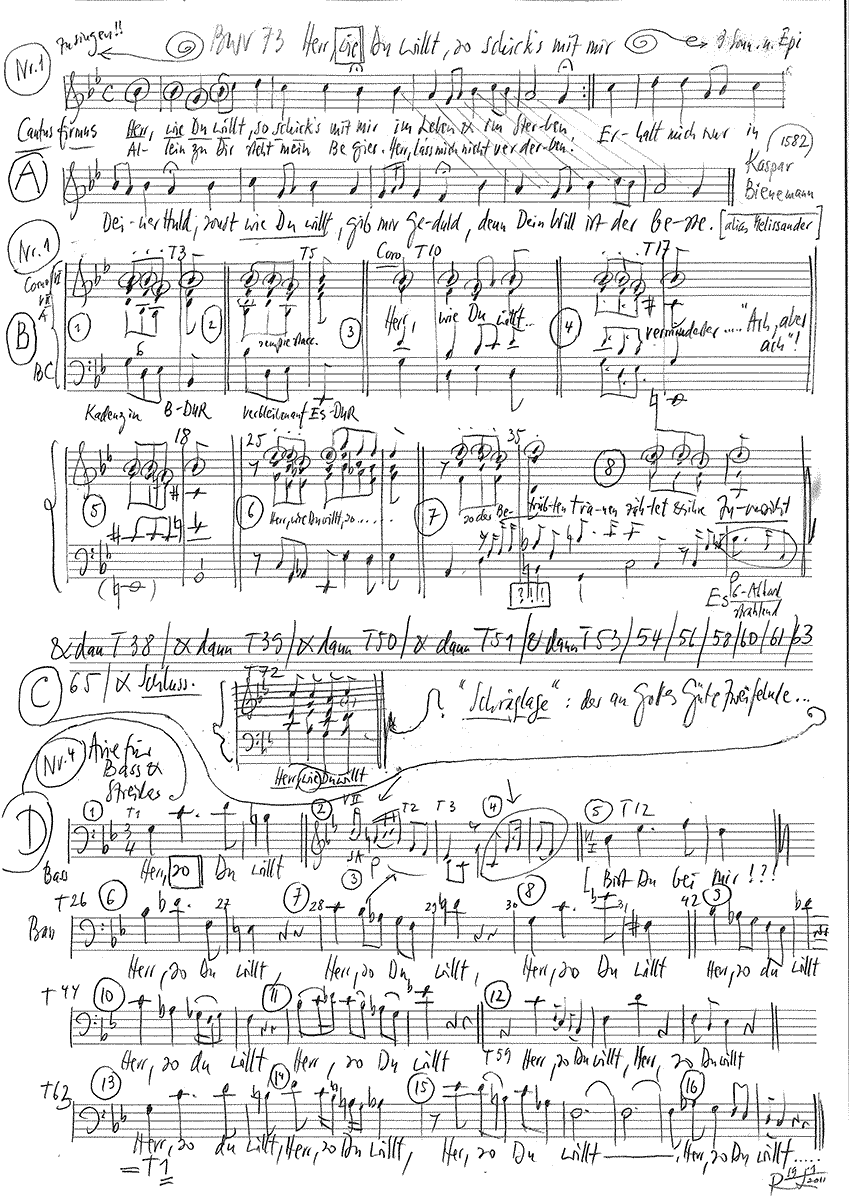 Zusingen!!
BWV 73 Herr, wie Du willt, so schick's mit mir 3. Sonn. n. Epi
Nr. 1
C
Cantus firmus Herr, wie Du willt, so schick's mit mir im Leben & im Sterben Er- halt mich nur in
Al- lein zu Dir steht mein Begier. Herr, lass mich nicht verderben! (1582)
A Kaspar
Bienemann
Dei-ner Huld, sonst wie Du willt, gib mir Ge-duld, denn Dein Will ist der Be-ste. [alias Melissander]
Nr. 1
T3 T5 Coro T10 T17
Corno
VII
A
B 1 2 3 4
Herr, wie Du willt... verminderter ...."Ach, aber ach"!
6
BC
Kadenz in B-DUR verbleib auf Es-DUR
18 25 35
5 6 7 8
Herr, wie Du willt, so......
so das Be- trübten Tränen zählet & ihre Zu-versicht
?!!!
Es 6-Akkord
strahlend
& dan T38 / & dann T39 / & dann T50 / & dann T51 / & dann T53 / 54 / 56 / 58 / 60 / 61 / 63
C 65 / & Schluss. T72
"Schräglage": der an Gottes Güte Zweifelnde...
Herr, wie Du willt
Nr. 4 Arie für
Bass &
Streicher
D 1 T1 2 VII T2 T3 4 5 T12
3
4
Bass Herr, so Du willt 3 p [Bist Du bei mir!?!
T26 6 27 7 28 29 30 8 31 42 9
Bass
Herr, so Du willt, Herr, so Du willt, Herr, so Du willt Herr, so du willt
T44 10 11 12
Herr, so du willt Herr, so Du willt T59 Herr, so Du willt, Herr, so Du willt
T63 13 14 15 16
Herr, so du willt, Herr, so Du willt, Herr, so Du willt, Herr, so Du willt.....
= T1
2011